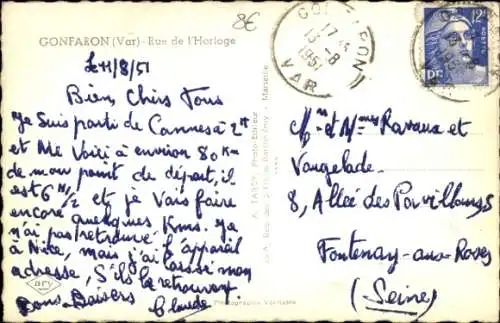 8€
GONFARON (Var) - Rue de l'Horloge
GONFARON
17 H
13 - 8
1951
VAR
12F
Le 11/8/51
Bien Chers Tous
Je Suis parti de Cannes à 2H
et Me Voici à environ 80 Km
de mon point de départ, il
est 6 H 1/2 et je Vais faire
encore quelques Kms. Je
n'ai pas retrouvé l'appareil
à Nice, mais j'ai laissé mon
adresse, S'ils le retrouvent
Bons-Baisers Claude
A. TARDY, Photo-Editeur
Marseille
Mr et Mmes Ravaux et
Vaugelade
8, Allée des Pavillons
Fontenay-aux-Roses
(Seine)
Photographie Véritable